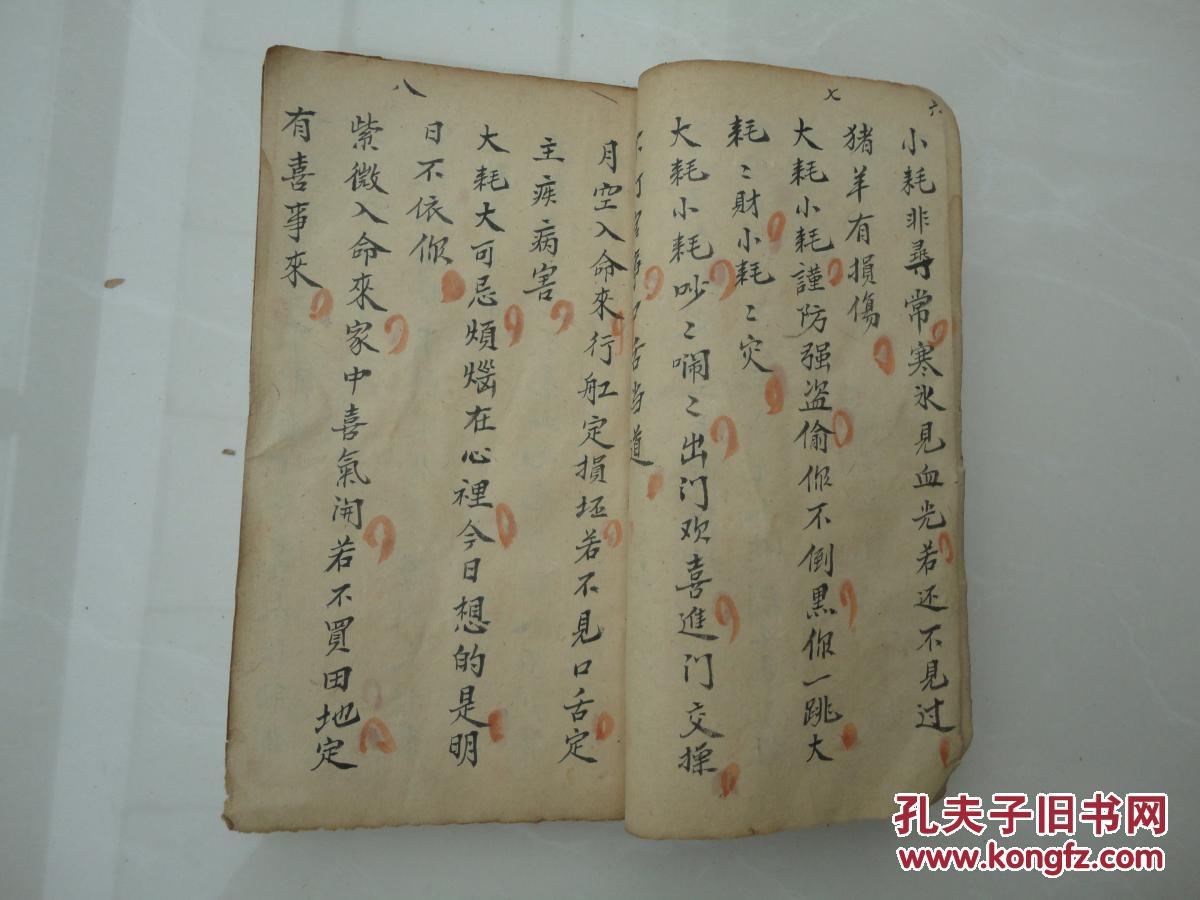 六
小耗非尋常寒氷見血光若还不見过
猪羊有損傷
七
大耗小耗謹防强盗偷你不倒黑你一跳大
耗〻財小耗〻灾
大耗小耗吵〻啊〻出门欢喜進门交操
口舌当道
月空入命來行舡定損坯若不見口舌定
主疾病害
大耗大可忌煩惱在心裡今日想的是明
日不依你
八
紫微入命來家中喜氣開若不買田地定
有喜事來
孔夫子旧书网
www.kongfz.com